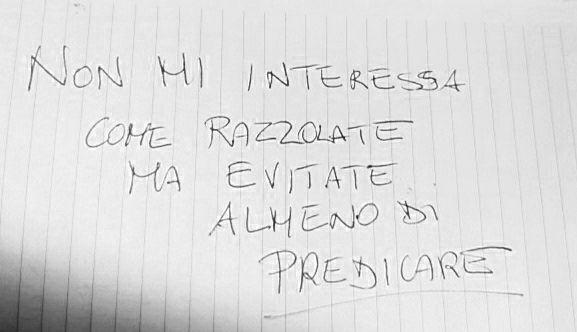 NON MI INTERESSA
COME RAZZOLATE
MA EVITATE
ALMENO DI
PREDICARE